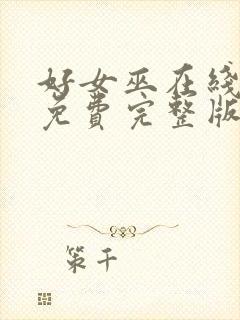 好女巫在线
免费完整版
策千